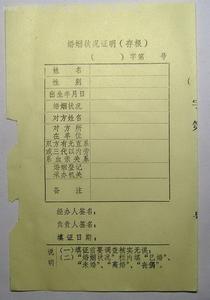 婚姻状况证明（存根）
（　　）字第　号
姓名
性别
出生年月日
婚姻状况
对方姓名
对方所
在单位
双方有无直系
或三代以内旁
系血亲关系
婚姻登记
承办机关
备注
经办人签名：
负责人签名：
填证日期：
说明
（一）填证前要调查核实无误；
（二）“婚姻状况”栏内填“已婚”、
“未婚”、“离婚”、“丧偶”。
字第
号